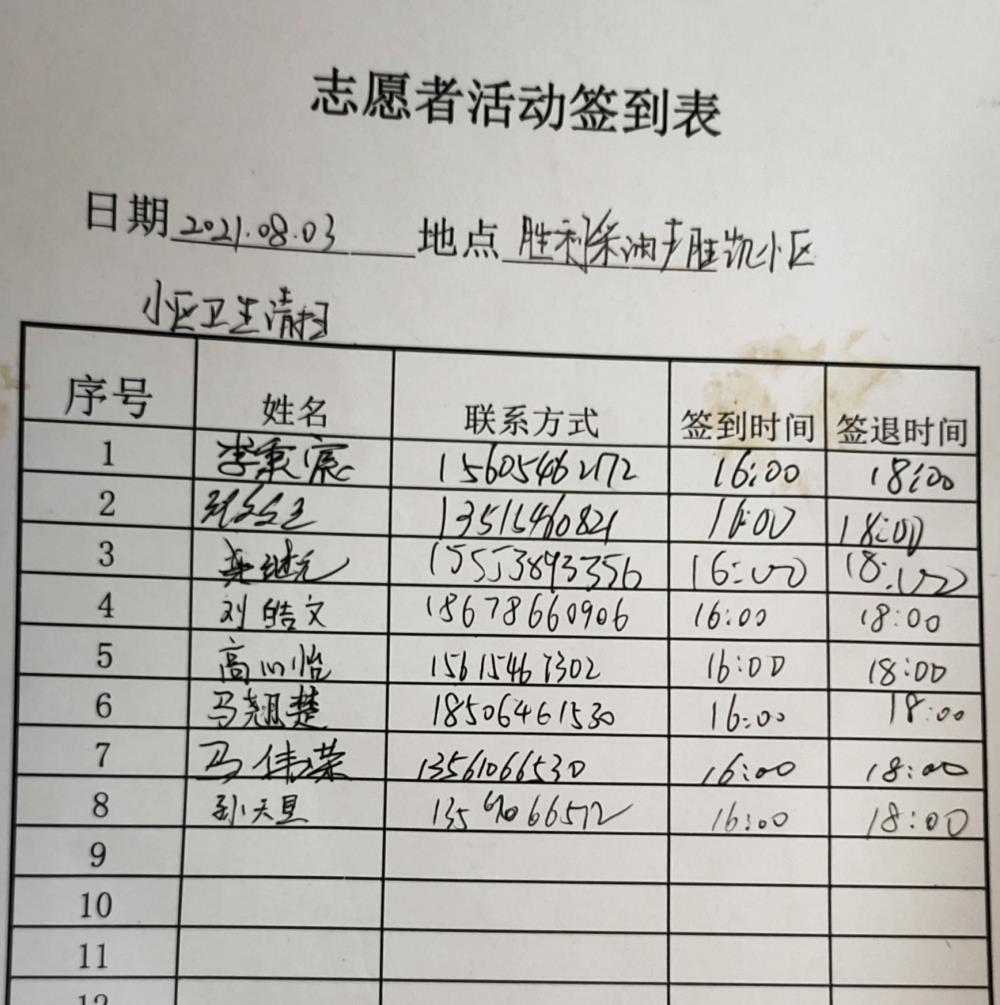 志愿者活动签到表
日期 2021.08.03 地点 胜利采油厂胜凯小区
小区卫生清扫
序号 姓名 联系方式 签到时间 签退时间
1 李秉宸 15605462172 16:00 18:00
2 13515460821 16:00 18:00
3 15553893356 16:00 18:00
4 刘皓文 18678660906 16:00 18:00
5 高心怡 15615467302 16:00 18:00
6 马翘楚 18506461530 16:00 18:00
7 马伟荣 13561066530 16:00 18:00
8 16:00 18:00
9
10
11
12